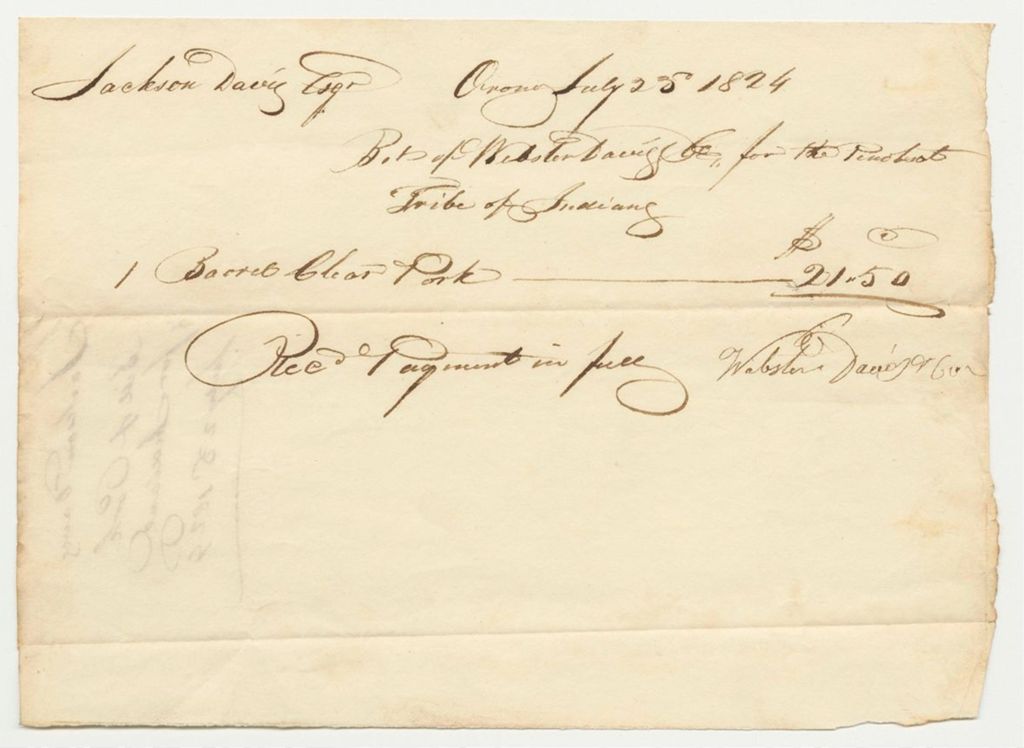 Jackson Davis Esqr Orono July 25 1824
Bot of Webster Davis & Co for the Penobsct
Tribe of Indians
$ c
1 Barrel Clear Pork 21.50
Recd Payment in full Webster Davis & Co
July 25 1824